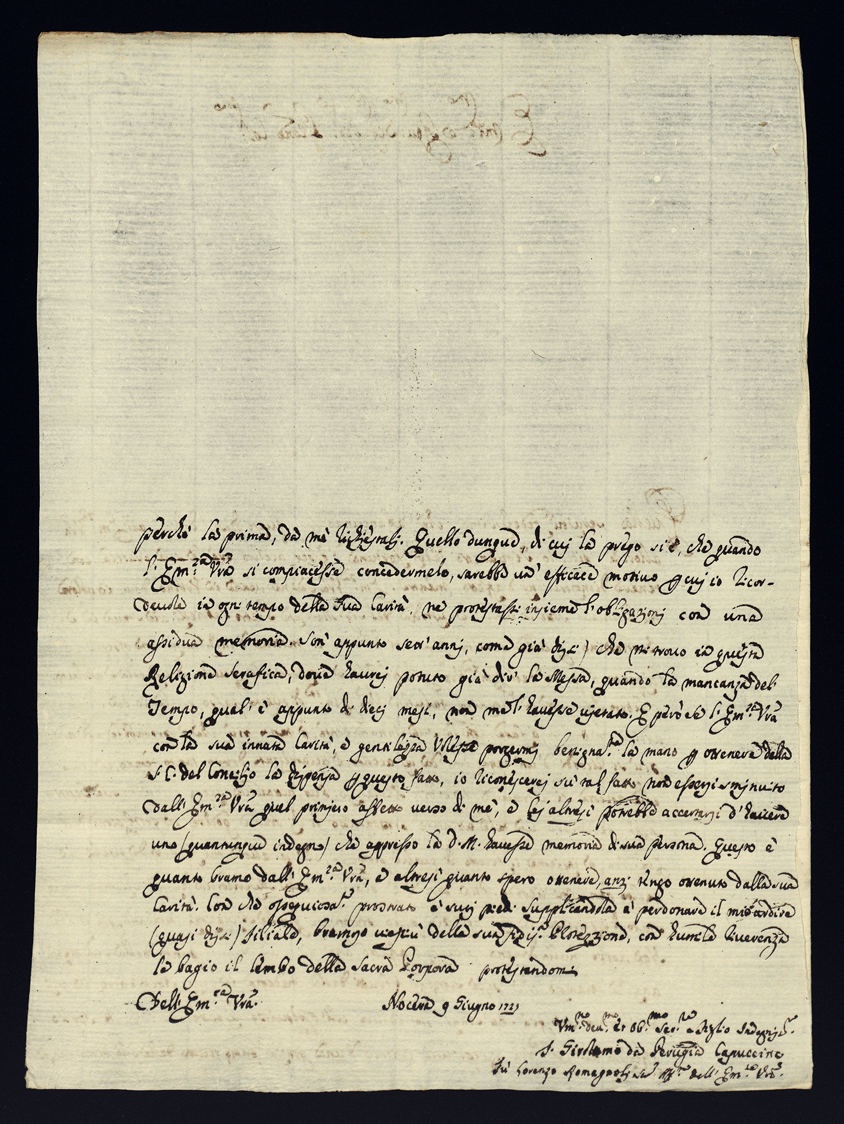 perche la prima, da me richiestali. Quello dunque, di cui la prego si è, che quando
l'Em.za Vra si compiacesse concedermelo, sarebbe un' efficace motivo p cui io ricor-
devole in ogni tempo della sua Carità, ne protestassi insieme l'obligazioni con una
assidua memoria. Son' appunto sett' anni, come già dissi) che mi trovo in questa
Religione Serafica, dove havrej potuto già dir la Messa, quando la mancanza del
Tempo, qual' è appunto di dieci mesi, non me l'havesse vietato. E però se l'Em.za Vra
con la sua innata Carità, e gentilezza volesse porgermj benigna.te la mano p ottenere della
S. C. del Concilio la dispensa p questo fatto, io riconoscerej in tal fatto non essersi sminuito
dall' Em.za Vra quel primiero affetto verso di me, e lej altresì potrebbe accertarsi d'havere
uno (quantunque indegno) che appresso la D. M. havesse memoria di sua persona. Questo è
quanto bramo dall' Em.za Vra, e altresì quanto spero ottenere, anzi tengo ottenuto dalla sua
Carità. Con che ossequiosa.te prostrato a' suoj piedi supplicandola a perdonare il mio ardire
(quasi dissi) filiale, bramoso della sua Protezzione, con humile riverenza
le bagio il lembo della Sacra Porpora protestandomi
Dell' Em.za Vra. Nocera 9 Giugno 1721
Vm.mo dev.mo et Ob.mo Ser.re e figlio Indegniss.o
F. Girolamo da Perugia Capuccino
Lorenzo Romagnoli dell' Em.za Vra.